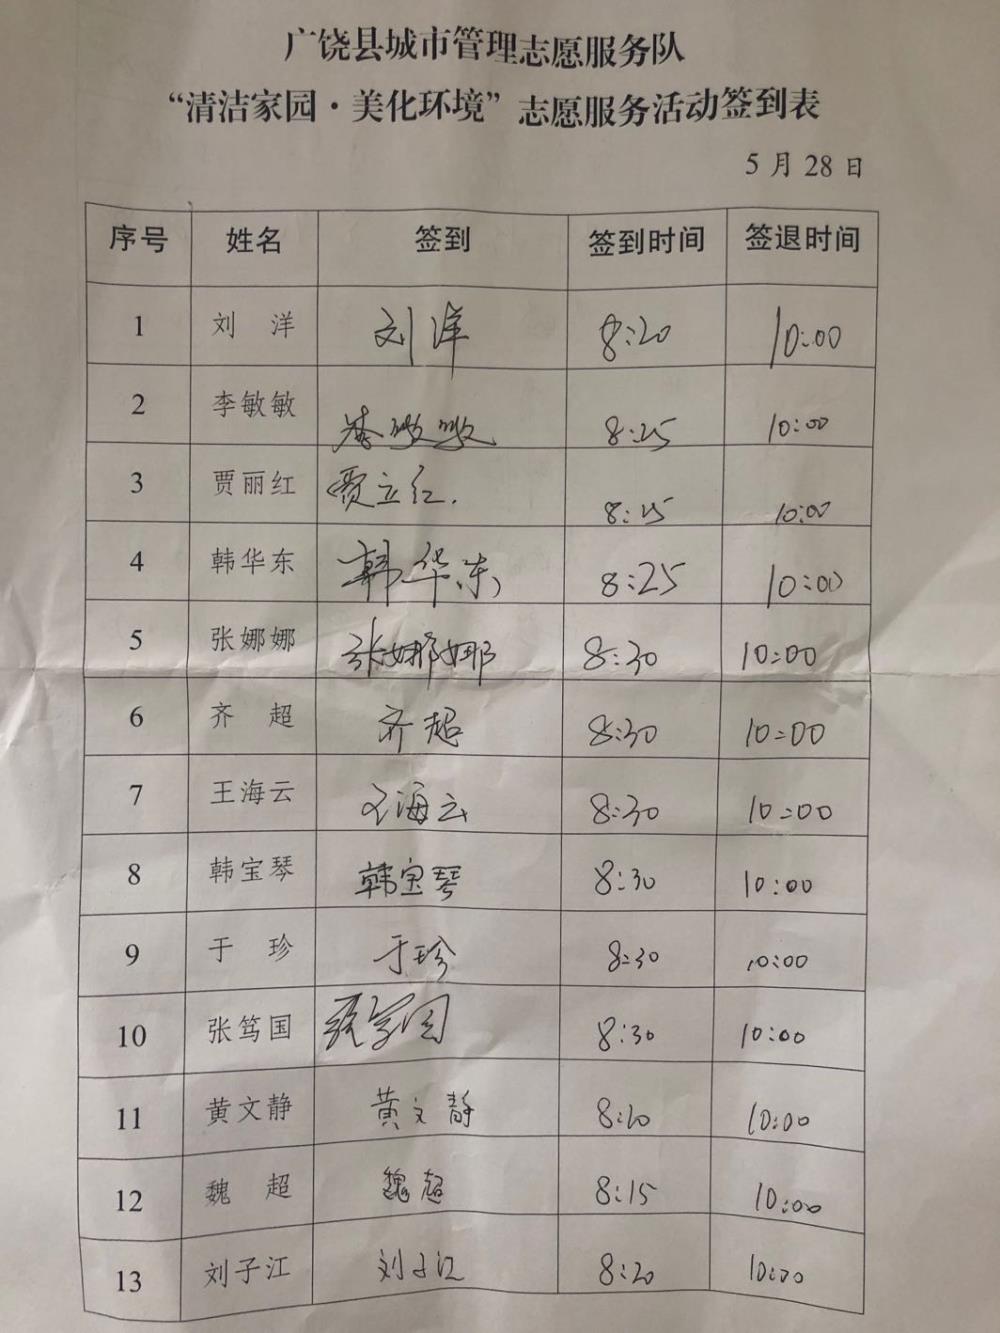 广饶县城市管理志愿服务队
“清洁家园·美化环境”志愿服务活动签到表
5月28日
序号 姓名 签到 签到时间 签退时间
1 刘 洋 刘洋 8:20 10:00
2 李敏敏 李敏敏 8:25 10:00
3 贾丽红 贾立红. 8:25 10:00
4 韩华东 韩华东 8:25 10:00
5 张娜娜 张娜娜 8:30 10:00
6 齐 超 齐超 8:30 10:00
7 王海云 王海云 8:30 10:00
8 韩宝琴 韩宝琴 8:30 10:00
9 于 珍 于珍 8:30 10:00
10 张笃国 张笃国 8:30 10:00
11 黄文静 黄文静 8:20 10:00
12 魏 超 魏超 8:15 10:00
13 刘子江 刘子江 8:20 10:00